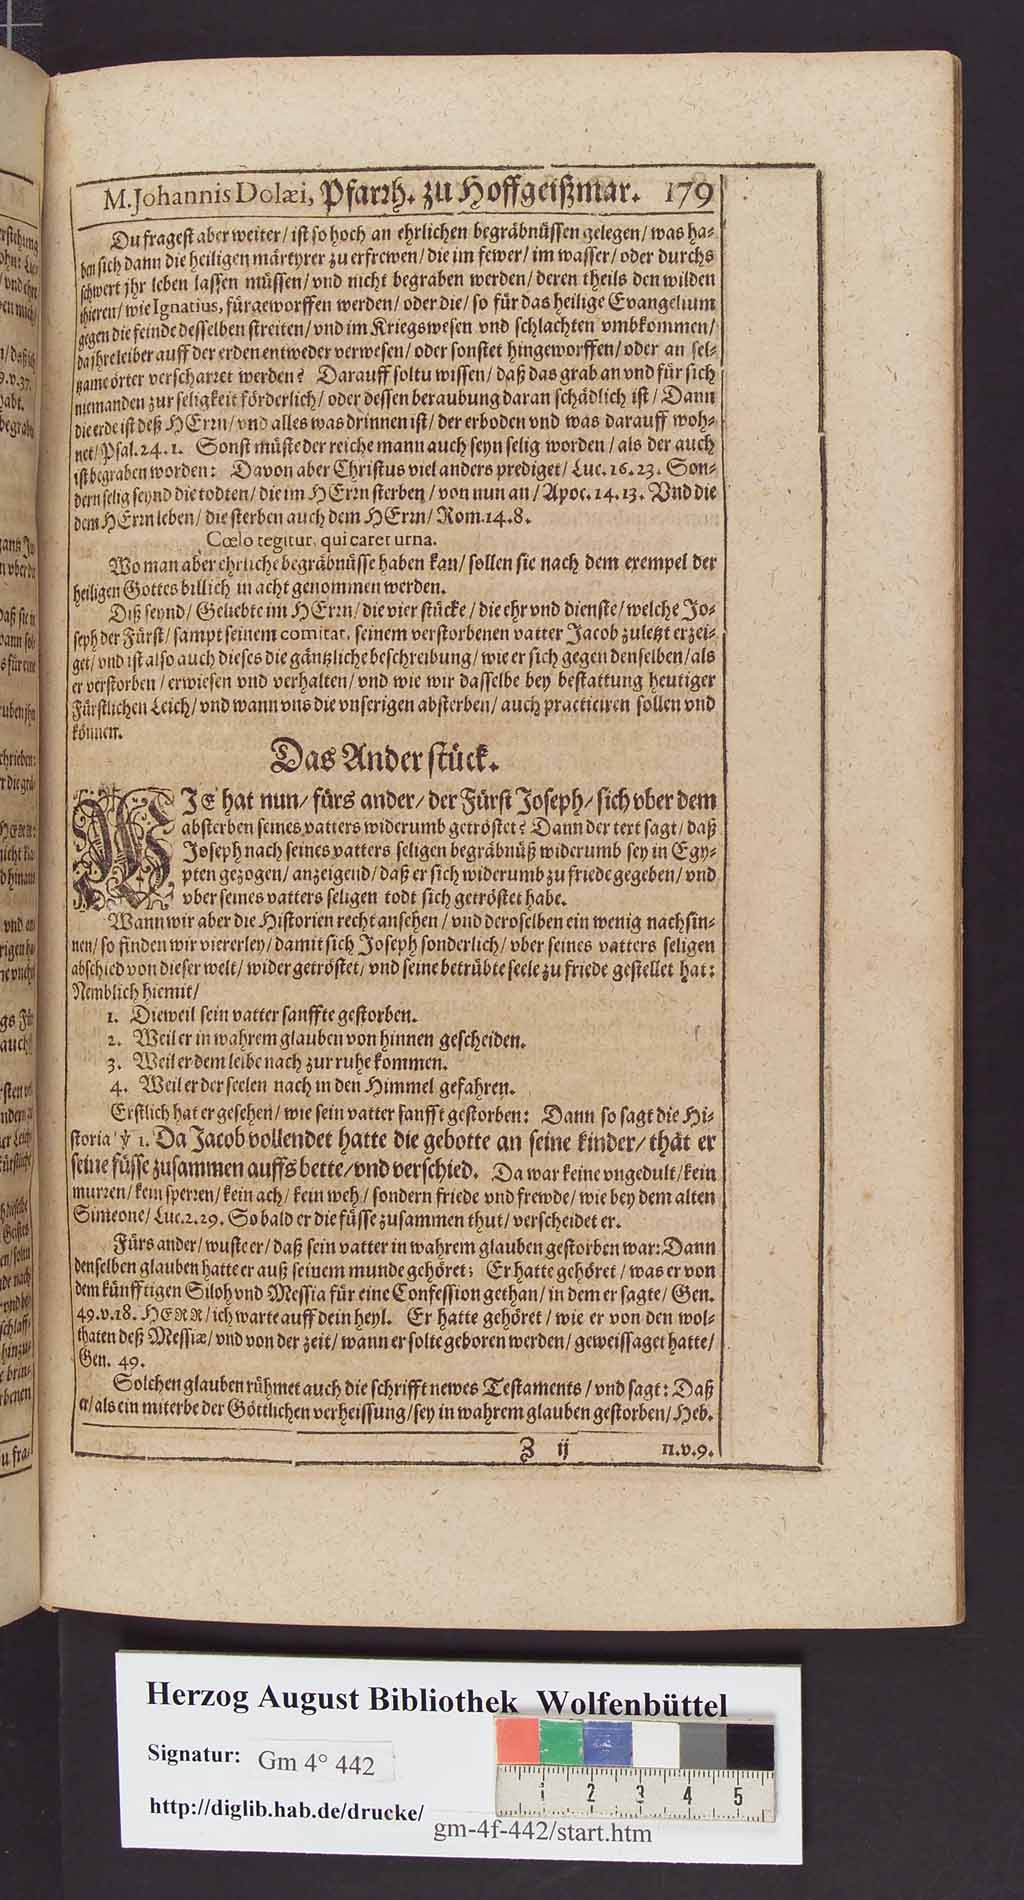 M. Johannis Dolæi, Pfarrh. zu Hoffgeißmar. 179
Du fragest aber weiter / ist so hoch an ehrlichen begräbnüssen gelegen / was ha-
ben sich dann die heiligen märtyrer zu erfrewen / die im fewer / im wasser / oder durchs
schwert jhr leben lassen müssen / vnd nicht begraben werden / deren theils den wilden
thieren / wie Ignatius, fürgeworffen werden / oder die / so für das heilige Evangelium
gegen die feinde desselben streiten / vnd im Kriegswesen vnd schlachten vmbkommen /
da jhre leiber auff der erden entweder verwesen / oder sonstet hingeworffen / oder an sel-
tzame örter verscharret werden? Darauff soltu wissen / daß das grab an vnd für sich
niemanden zur seligkeit förderlich / oder dessen beraubung daran schädlich ist / Dann
die erde ist deß HErrn / vnd alles was drinnen ist / der erboden vnd was darauff woh-
net / Psal. 24. 1. Sonst müste der reiche mann auch seyn selig worden / als der auch
ist begraben worden: Davon aber Christus viel anders prediget / Luc. 16. 23. Son-
dern selig seynd die todten / die im HErrn sterben / von nun an / Apoc. 14. 13. Vnd die
dem HErrn leben / die sterben auch dem HErrn / Rom. 14. 8.
Cœlo tegitur, qui caret urna.
Wo man aber ehrliche begräbnüsse haben kan / sollen sie nach dem exempel der
heiligen Gottes billich in acht genommen werden.
Diß seynd / Geliebte im HErrn / die vier stücke / die ehr vnd dienste / welche Jo-
seph der Fürst / sampt seinem comitat, seinem verstorbenen vatter Jacob zuletzt erzei-
get / vnd ist also auch dieses die gäntzliche beschreibung / wie er sich gegen denselben / als
er verstorben / erwiesen vnd verhalten / vnd wie wir dasselbe bey bestattung heutiger
Fürstlichen Leich / vnd wann vns die vnserigen absterben / auch practiciren sollen vnd
können.
Das Ander stück.
WIE hat nun / fürs ander / der Fürst Joseph / sich vber dem
absterben seines vatters widerumb getröstet? Dann der text sagt / daß
Joseph nach seines vatters seligen begräbnüß widerumb sey in Egy-
pten gezogen / anzeigend / daß er sich widerumb zu friede gegeben / vnd
vber seines vatters seligen todt sich getröstet habe.
Wann wir aber die Historien recht ansehen / vnd deroselben ein wenig nachsin-
nen / so finden wir viererley / damit sich Joseph sonderlich / vber seines vatters seligen
abschied von dieser welt / wider getröstet / vnd seine betrübte seele zu friede gestellet hat:
Nemblich hiemit /
1. Dieweil sein vatter sanffte gestorben.
2. Weil er in wahrem glauben von hinnen gescheiden.
3. Weil er dem leibe nach zur ruhe kommen.
4. Weil er der seelen nach in den Himmel gefahren.
Erstlich hat er gesehen / wie sein vatter sanfft gestorben: Dann so sagt die Hi-
storia ℣ 1. Da Jacob vollendet hatte die gebotte an seine kinder / thät er
seine füsse zusammen auffs bette / vnd verschied. Da war keine vngedult / kein
murren / kein sperren / kein ach / kein weh / sondern friede vnd frewde / wie bey dem alten
Simeone / Luc. 2. 29. So bald er die füsse zusammen thut / verscheidet er.
Fürs ander / wuste er / daß sein vatter in wahrem glauben gestorben war: Dann
denselben glauben hatte er auß seinem munde gehöret; Er hatte gehöret / was er von
dem künfftigen Siloh vnd Messia für eine Confession gethan / in dem er sagte / Gen.
49. v. 18. HERR / ich warte auff dein heyl. Er hatte gehöret / wie er von den wol-
thaten deß Messiæ / vnd von der zeit / wann er solte geboren werden / geweissaget hatte /
Gen. 49.
Solchen glauben rühmet auch die schrifft newes Testaments / vnd sagt: Daß
er / als ein miterbe der Göttlichen verheissung / sey in wahrem glauben gestorben / Heb.
Z ij 11. v. 9.
Herzog August Bibliothek Wolfenbüttel
Signatur: Gm 4° 442
http://diglib.hab.de/drucke/
gm-4f-442/start.htm
1 2 3 4 5